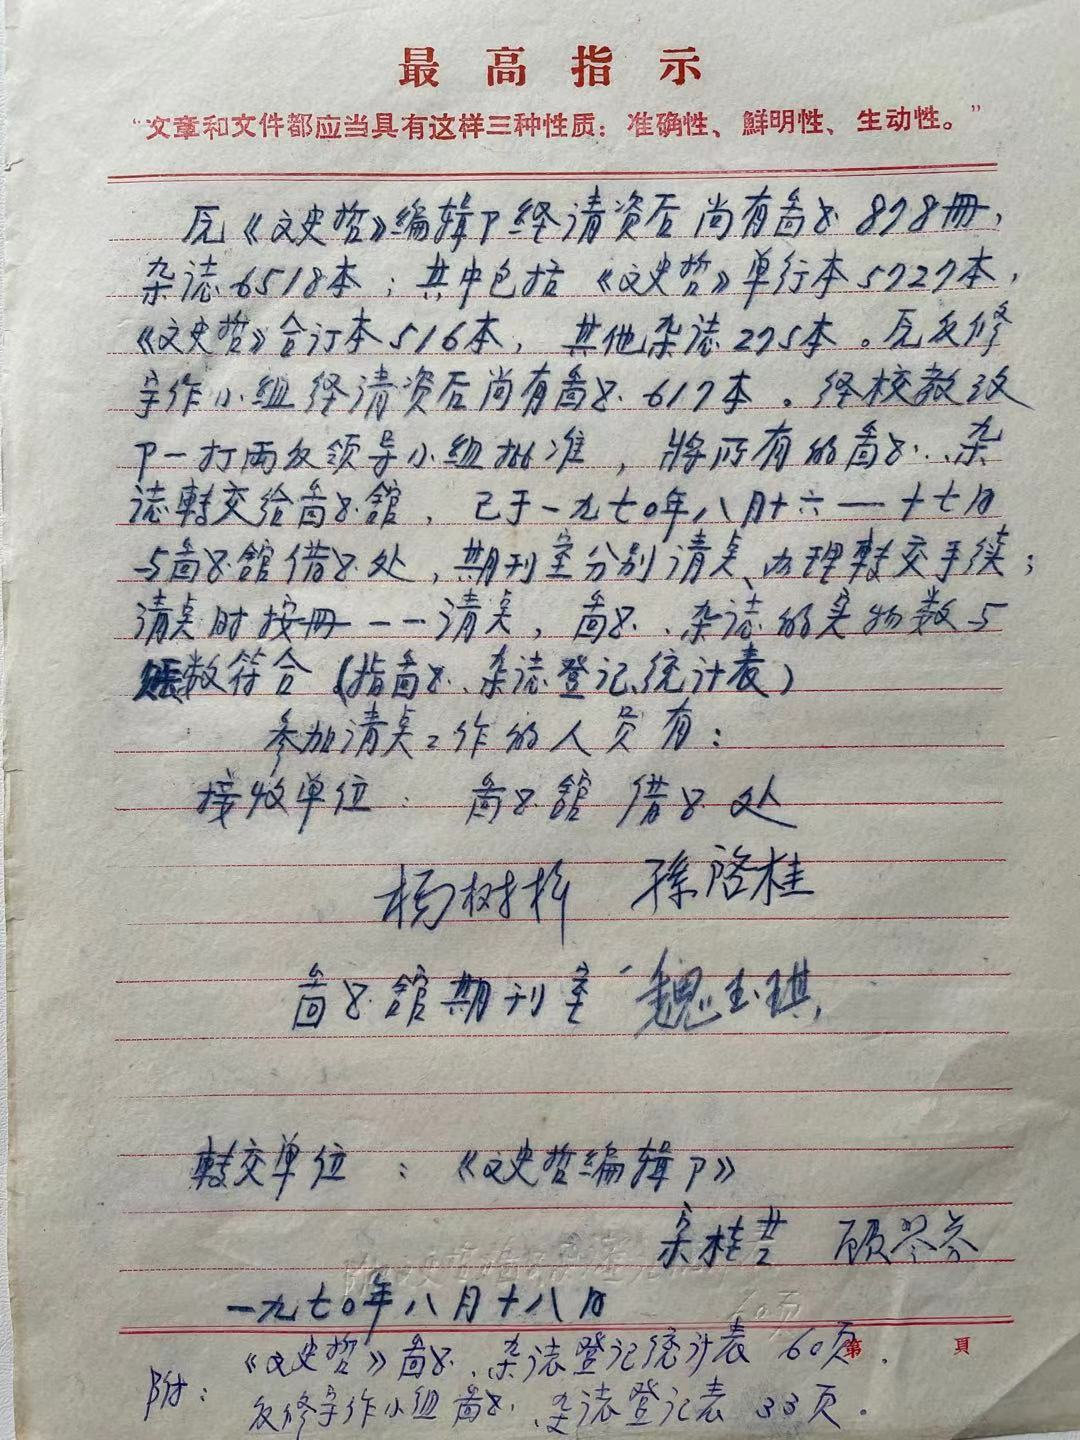 最高指示
“文章和文件都应当具有这样三种性质：准确性、鮮明性、生动性。”
原《文史哲》编辑卩经清资后尚有啚书878冊，
杂誌6518本；其中包括《文史哲》单行本5727本，
《文史哲》合订本516本，其他杂誌275本。原反修
写作小组经清资后尚有啚书617本。经校教改
卩一打两反领导小组批准，将所有的啚书、杂
誌転交给啚书舘，已于一九七〇年八月十六—十七日
与啚书舘借书处，期刊室分别清点、办理転交手续；
清点时按冊一一清点，啚书、杂誌的实物数与
账数符合（指啚书、杂誌登记统计表）
参加清点工作的人员有：
接收单位：啚书舘借书处
杨树 孫啓桂
啚书舘期刊室 魏玉琪
転交单位：《文史哲编辑卩》
宋桂芸 顾琴芬
一九七〇年八月十八日
第 頁
附：《文史哲》啚书、杂誌登记统计表 60页.
反修写作小组啚书、杂誌登记表 33页.